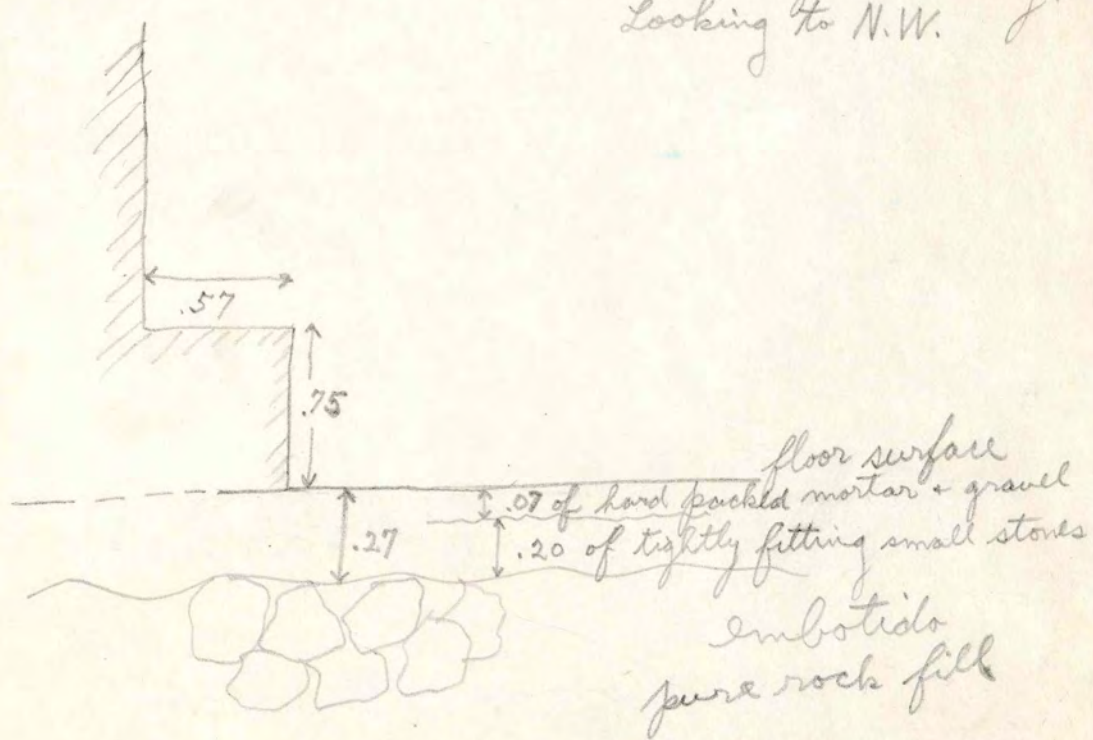 Looking to N.W.
.57
.75
floor surface
.07 of hard packed mortar + gravel
.27
.20 of tightly fitting small stones
embotido
pure rock fill